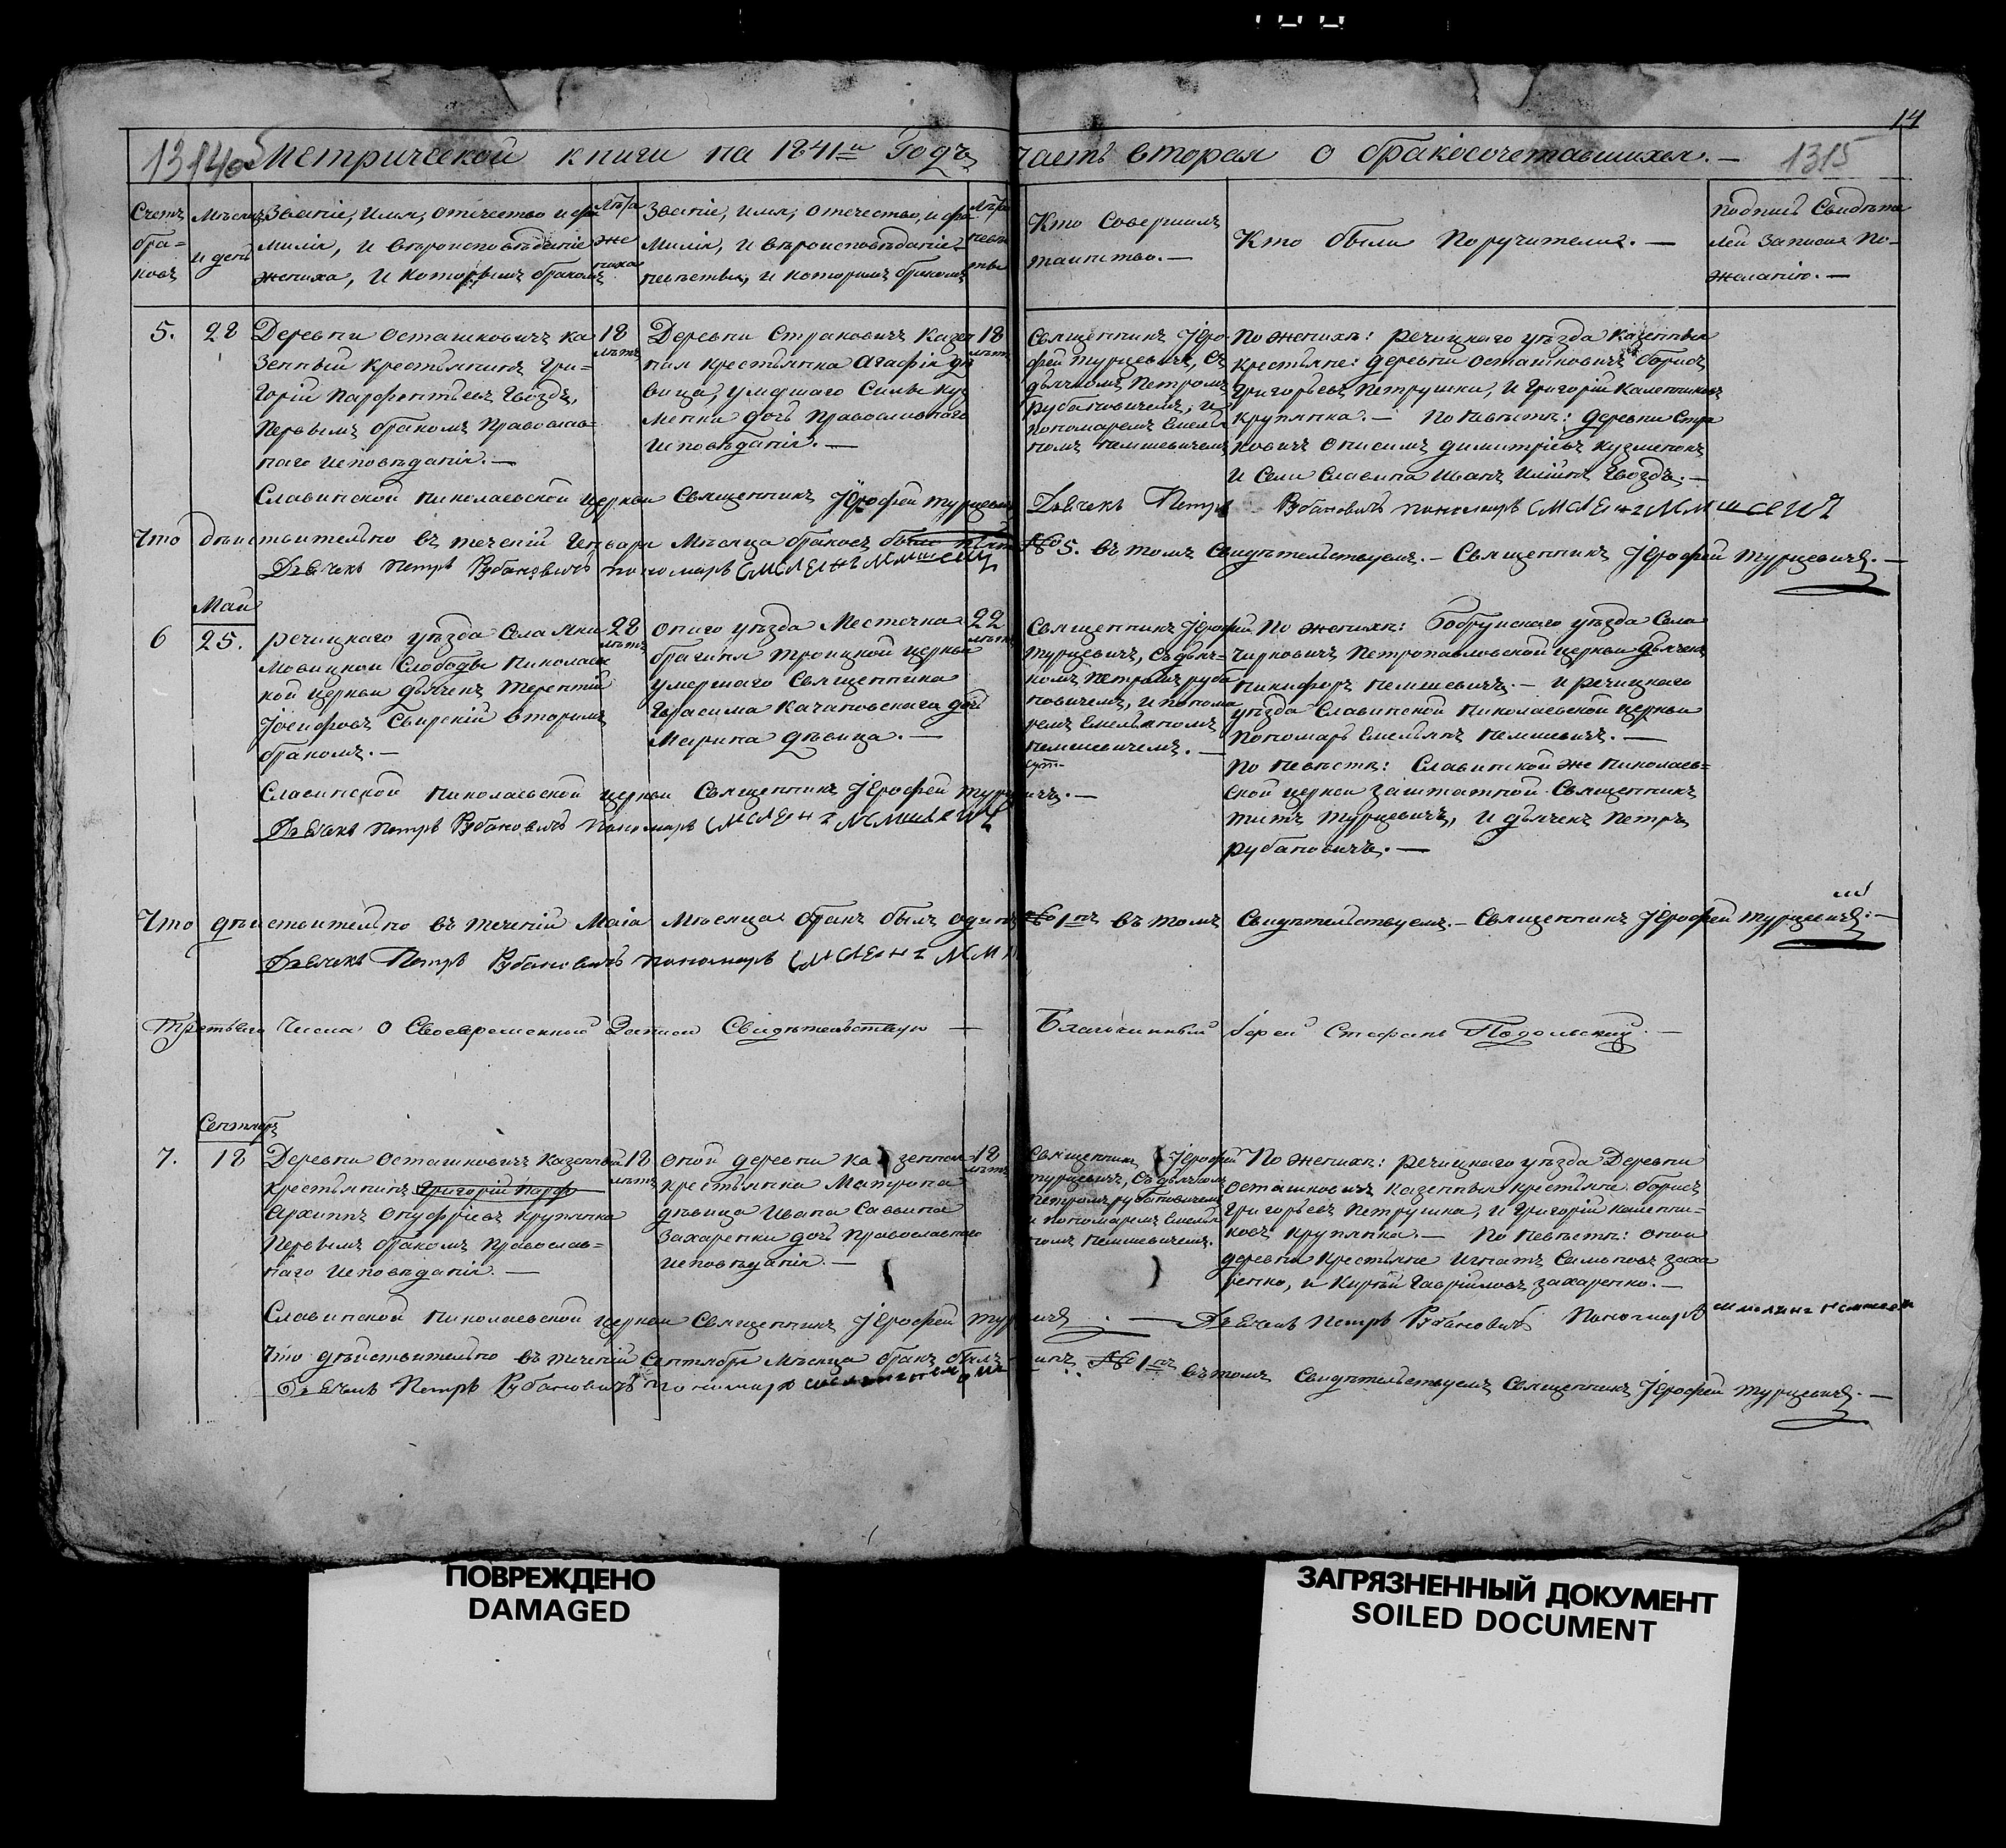 14
1314об Метрической книги на 1841й Годъ часть вторая о бракосочетавшихся. — 1315
Счетъ бра=ковъ
Мѣсяцъ и день
Званіе, имя, отечество и фа
милія, и вѣроисповѣданіе
жениха, и которымъ бракомъ
Лѣта же ниха
Званіе, имя, отечество, и фа
милія, и вѣроисповѣданіе
невѣсты, и которымъ бракомъ
Лѣта невѣ сты
Кто совершилъ
таинство. —
Кто были поручители. —
Подпись свидѣте
лей записи по=
желанію. —
5. 28
Деревни Осташковичъ ка
зенный крестьянинъ Гри=
горій Парфентьевъ Гвоздь,
первымъ бракомъ православ=
наго исповѣданія. —
18 лѣтъ
Деревни Страковичъ казен
ная крестьянка Агафія дѣ
вица, умершаго Силы Куз
менки дочь православнаго
исповѣданія. —
18 лѣтъ
Священникъ Іеро
фей Турцевичъ, съ
дьячкомъ Петромъ
Рубановичемъ, и
пономаремъ Емелья
номъ Немшевичемъ
По женихѣ: Речицкаго уѣзда казенные
крестьяне: деревни Осташковичъ Борисъ
Григорьевъ Петрушка, и Григорій Каленниковъ
Крупянка. — По невѣстѣ: деревни Стра
ковичъ Онисимъ Димитріевъ Кузменокъ
и села Славина Иванъ Гвоздь. —
Славинской Николаевской церкви Священникъ Іерофей Турцевичъ Дьячекъ Петръ Рубановичъ пономарь
Что дѣйствительно въ теченіи Генваря мѣсяца браковъ было пять №5. въ томъ свидѣтельствуемъ. — Священникъ Іерофей Турцевичъ. —
Дьячекъ Петръ Рубановичъ пономарь
Май
6 25.
Речицкаго уѣзда села Яки
мовицкой Слободы Николаев
кой церкви дьячекъ Терентій
Іосифовъ Свирскій вторымъ
бракомъ. —
28 лѣтъ
Онаго уѣзда местечка
Брагиня Троицкой церкви
умершаго священника
Герасима Качановскаго дочь
Марина дѣвица. —
22 лѣтъ
Священникъ Іерофей
Турцевичъ, съ дьяч=
комъ Петромъ Руба
новичемъ, и понома
ремъ Емельяномъ
Немшевичемъ. —
По женихѣ: Бобруйскаго уѣзда села
Чирковичъ Петропавловской церкви дьячекъ
Никифоръ Немшевичъ. — и Речицкаго
уѣзда Славинской Николаевской церкви
пономарь Емельянъ Немшевичъ. —
По невѣстѣ: Славинской же Николаев=
ской церкви заштатной священникъ
Титъ Турцевичъ, и дьячекъ Петръ
Рубановичъ. —
Славинской Николаевской церкви Священникъ Іерофей Турцевичъ. —
Дьячекъ Петръ Рубановичъ пономарь
Что дѣйствительно въ теченіи Маіа мѣсяца бракъ былъ одинъ №1нъ въ томъ свидѣтельствуемъ. — Священникъ Іерофей Турцевичъ. —
Дьячекъ Петръ Рубановичъ пономарь
Третьяго числа о своевременной записи свидѣтельствую — Благочинный Іерей Стефанъ Подольскій. —
Сентябрь
7. 18
Деревни Осташковичъ казенный
крестьянинъ Григорій Парф
Архипъ Онуфріевъ Крупянка
первымъ бракомъ православ=
наго исповѣданія. —
18 лѣтъ
Оной деревни казенная
крестьянка Матрона
дѣвица Ивана Саввина
Захаренки дочь православнаго
исповѣданія. —
18 лѣтъ
Священникъ Іерофей
Турцевичъ, съ дьячкомъ
Петромъ Рубановичемъ
и пономаремъ Емелья
номъ Немшевичемъ.
По женихѣ: Речицкаго уѣзда деревни
Осташковичъ казенные крестьяне Борисъ
Григорьевъ Петрушка, и Григорій Каленни=
ковъ Крупянка. — По невѣстѣ: оной
деревни крестьяне Игнатъ Симоновъ Заха
ренко, и Кирѣй Гавріиловъ Захаренко. —
Славинской Николаевской церкви Священникъ Іерофей Турцевичъ. — Дьячекъ Петръ Рубановичъ Пономарь
Что дѣйствительно въ теченіи Сентября мѣсяца бракъ былъ одинъ №1нъ въ томъ свидѣтельствуемъ Священникъ Іерофей Турцевичъ. —
Дьячекъ Петръ Рубановичъ пономарь
ПОВРЕЖДЕНО
DAMAGED
ЗАГРЯЗНЕННЫЙ ДОКУМЕНТ
SOILED DOCUMENT